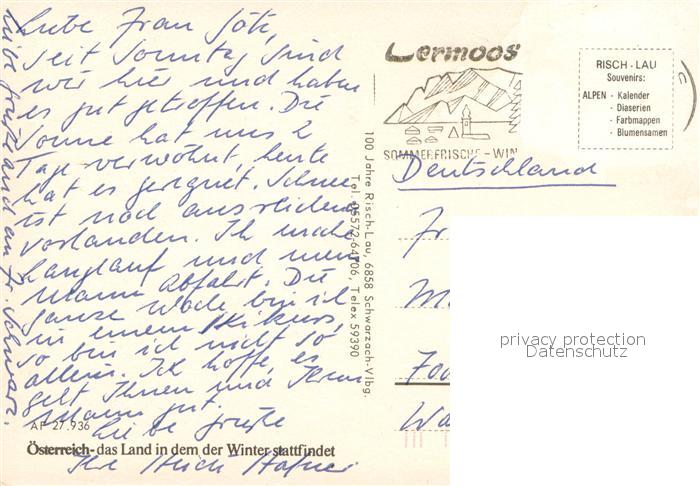 Liebe Frau Götz,
seit Sonntag sind
wir hier und haben
es gut getroffen. Die
Sonne hat uns 2
Tage verwöhnt, heute
hat es geregnet. Schnee
ist noch ausreichend
vorhanden. Ich mache
Langlauf und mein
Mann Abfahrt. Die
ganze Woche bin ich
in einem Skikurs,
so bin ich nicht so
allein. Ich hoffe, es
geht Ihnen und Ihrem
Mann gut.
Liebe Grüße
Ihre
liebe Grüße auch an Fr. Schwarz.
AP 27.936
Österreich-das Land in dem der Winter stattfindet
100 Jahre Risch-Lau, 6858 Schwarzach-Vlbg.
Tel. 05572-64706, Telex 59390
Lermoos
SOMMERFRISCHE-WIN
RISCH-LAU
Souvenirs:
ALPEN - Kalender
- Diaserien
- Farbmappen
- Blumensamen
Deutschland
Fr
privacy protection
Datenschutz